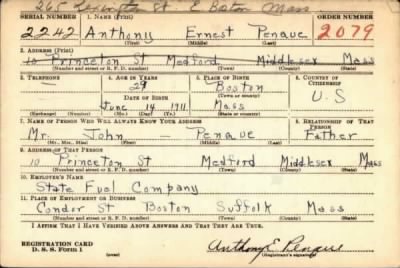 265 Lexington St. E Boston Mass
SERIAL NUMBER 1. NAME (Print) ORDER NUMBER
2242 Anthony Ernest Penque 2079
(First) (Middle) (Last)
2. ADDRESS (Print)
10 Princeton St Medford Middlesex Mass
(Number and street or R. F. D. number) (Town) (County) (State)
3. TELEPHONE 4. AGE IN YEARS 5. PLACE OF BIRTH 6. COUNTRY OF CITIZENSHIP
— 29 Boston
DATE OF BIRTH (Town or county) U.S
June 14 1911 Mass
(Exchange) (Number) (Mo.) (Day) (Yr.) (State or country)
7. NAME OF PERSON WHO WILL ALWAYS KNOW YOUR ADDRESS 8. RELATIONSHIP OF THAT PERSON
Mr. John — Penque Father
(Mr., Mrs., Miss) (First) (Middle) (Last)
9. ADDRESS OF THAT PERSON
10 Princeton St Medford Middlesex Mass
(Number and street or R. F. D. number) (Town) (County) (State)
10. EMPLOYER'S NAME
State Fuel Company
11. PLACE OF EMPLOYMENT OR BUSINESS
Condor St Boston Suffolk Mass
(Number and street or R. F. D. number) (Town) (County) (State)
I AFFIRM THAT I HAVE VERIFIED ABOVE ANSWERS AND THAT THEY ARE TRUE.
REGISTRATION CARD
D. S. S. FORM 1 (over) Anthony E. Penque
(Registrant's signature)